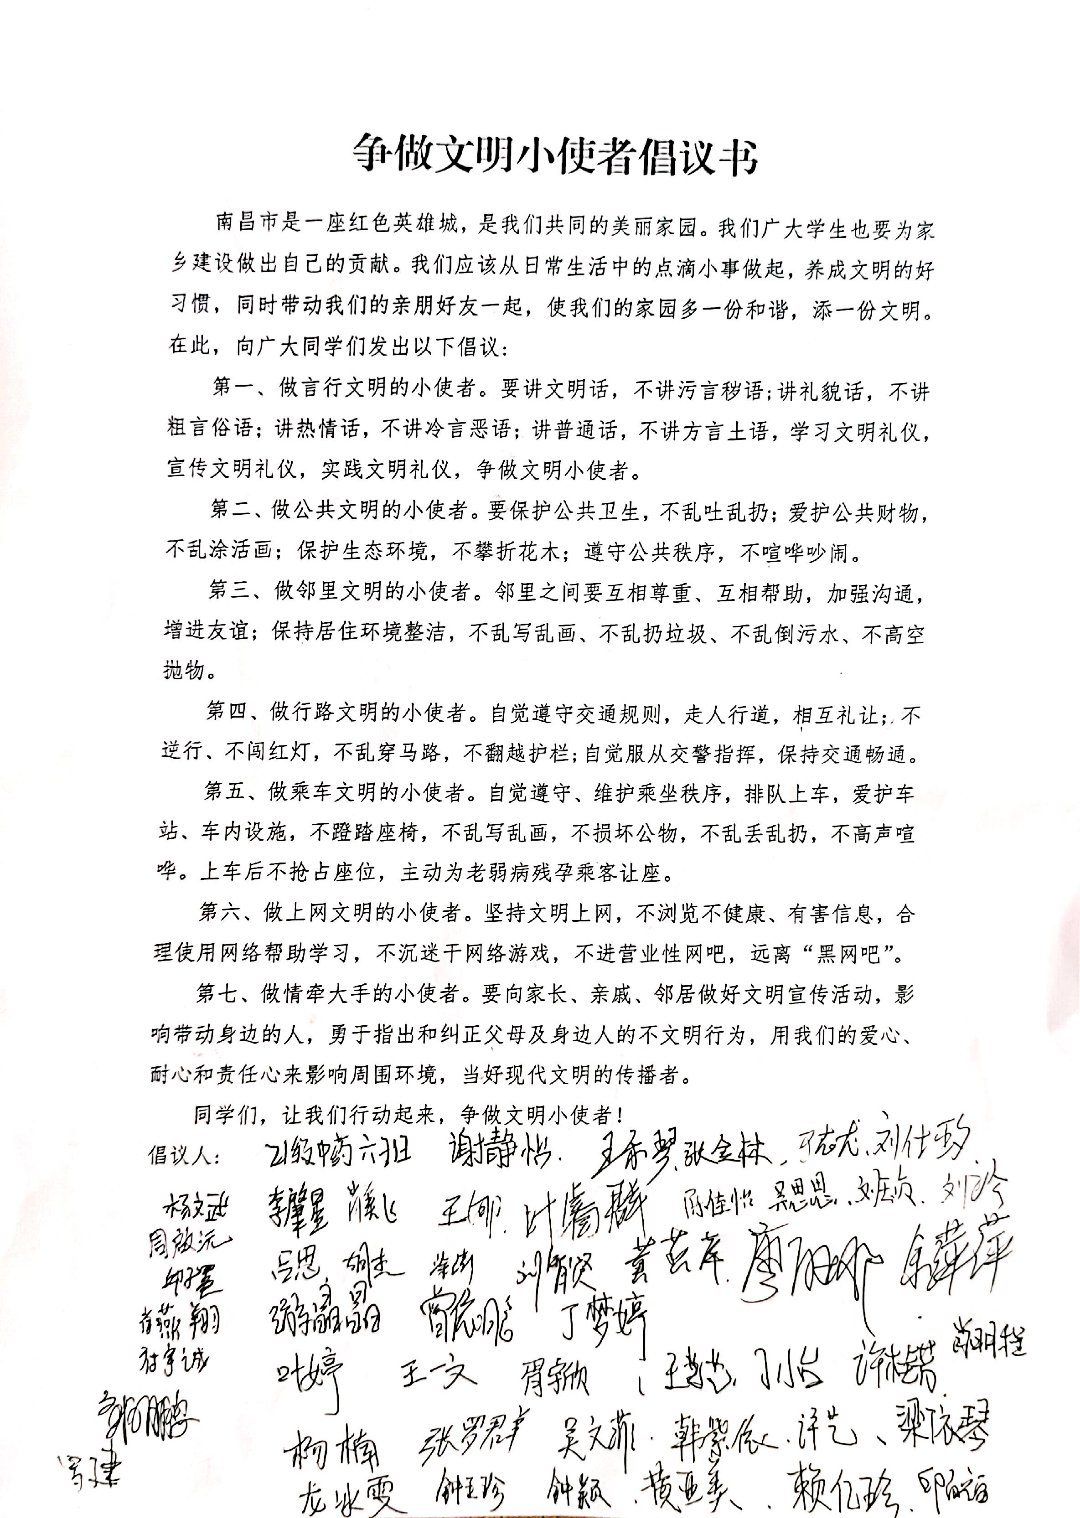 争做文明小使者倡议书
南昌市是一座红色英雄城，是我们共同的美丽家园。我们广大学生也要为家
乡建设做出自己的贡献。我们应该从日常生活中的点滴小事做起，养成文明的好
习惯，同时带动我们的亲朋好友一起，使我们的家园多一份和谐，添一份文明。
在此，向广大同学们发出以下倡议：
第一、做言行文明的小使者。要讲文明话，不讲污言秽语；讲礼貌话，不讲
粗言俗语；讲热情话，不讲冷言恶语；讲普通话，不讲方言土语，学习文明礼仪，
宣传文明礼仪，实践文明礼仪，争做文明小使者。
第二、做公共文明的小使者。要保护公共卫生，不乱吐乱扔；爱护公共财物，
不乱涂活画；保护生态环境，不攀折花木；遵守公共秩序，不喧哗吵闹。
第三、做邻里文明的小使者。邻里之间要互相尊重、互相帮助，加强沟通，
增进友谊；保持居住环境整洁，不乱写乱画、不乱扔垃圾、不乱倒污水、不高空
抛物。
第四、做行路文明的小使者。自觉遵守交通规则，走人行道，相互礼让；不
逆行、不闯红灯，不乱穿马路，不翻越护栏；自觉服从交警指挥，保持交通畅通。
第五、做乘车文明的小使者。自觉遵守、维护乘坐秩序，排队上车，爱护车
站、车内设施，不蹬踏座椅，不乱写乱画，不损坏公物，不乱丢乱扔，不高声喧
哗。上车后不抢占座位，主动为老弱病残孕乘客让座。
第六、做上网文明的小使者。坚持文明上网，不浏览不健康、有害信息，合
理使用网络帮助学习，不沉迷于网络游戏，不进营业性网吧，远离“黑网吧”。
第七、做情牵大手的小使者。要向家长、亲戚、邻居做好文明宣传活动，影
响带动身边的人，勇于指出和纠正父母及身边人的不文明行为，用我们的爱心、
耐心和责任心来影响周围环境，当好现代文明的传播者。
同学们，让我们行动起来，争做文明小使者！
倡议人： 21级中药六班 谢静怡 张金林 刘仕
李肇星 陈佳怡 吴思思 刘玲
周啟沅 吕思 胡杰 廖 余萍萍
丁梦婷
叶婷 王一文 胥宇欣
杨楠 张罗君 吴文菲 韩紫依 许艺 梁依琴
龙冰雯 钟玉珍 钟颖 黄亚美 赖亿珍